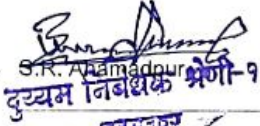 S.R. Ahamadpur
दुय्यम निबंधक श्रेणी-१